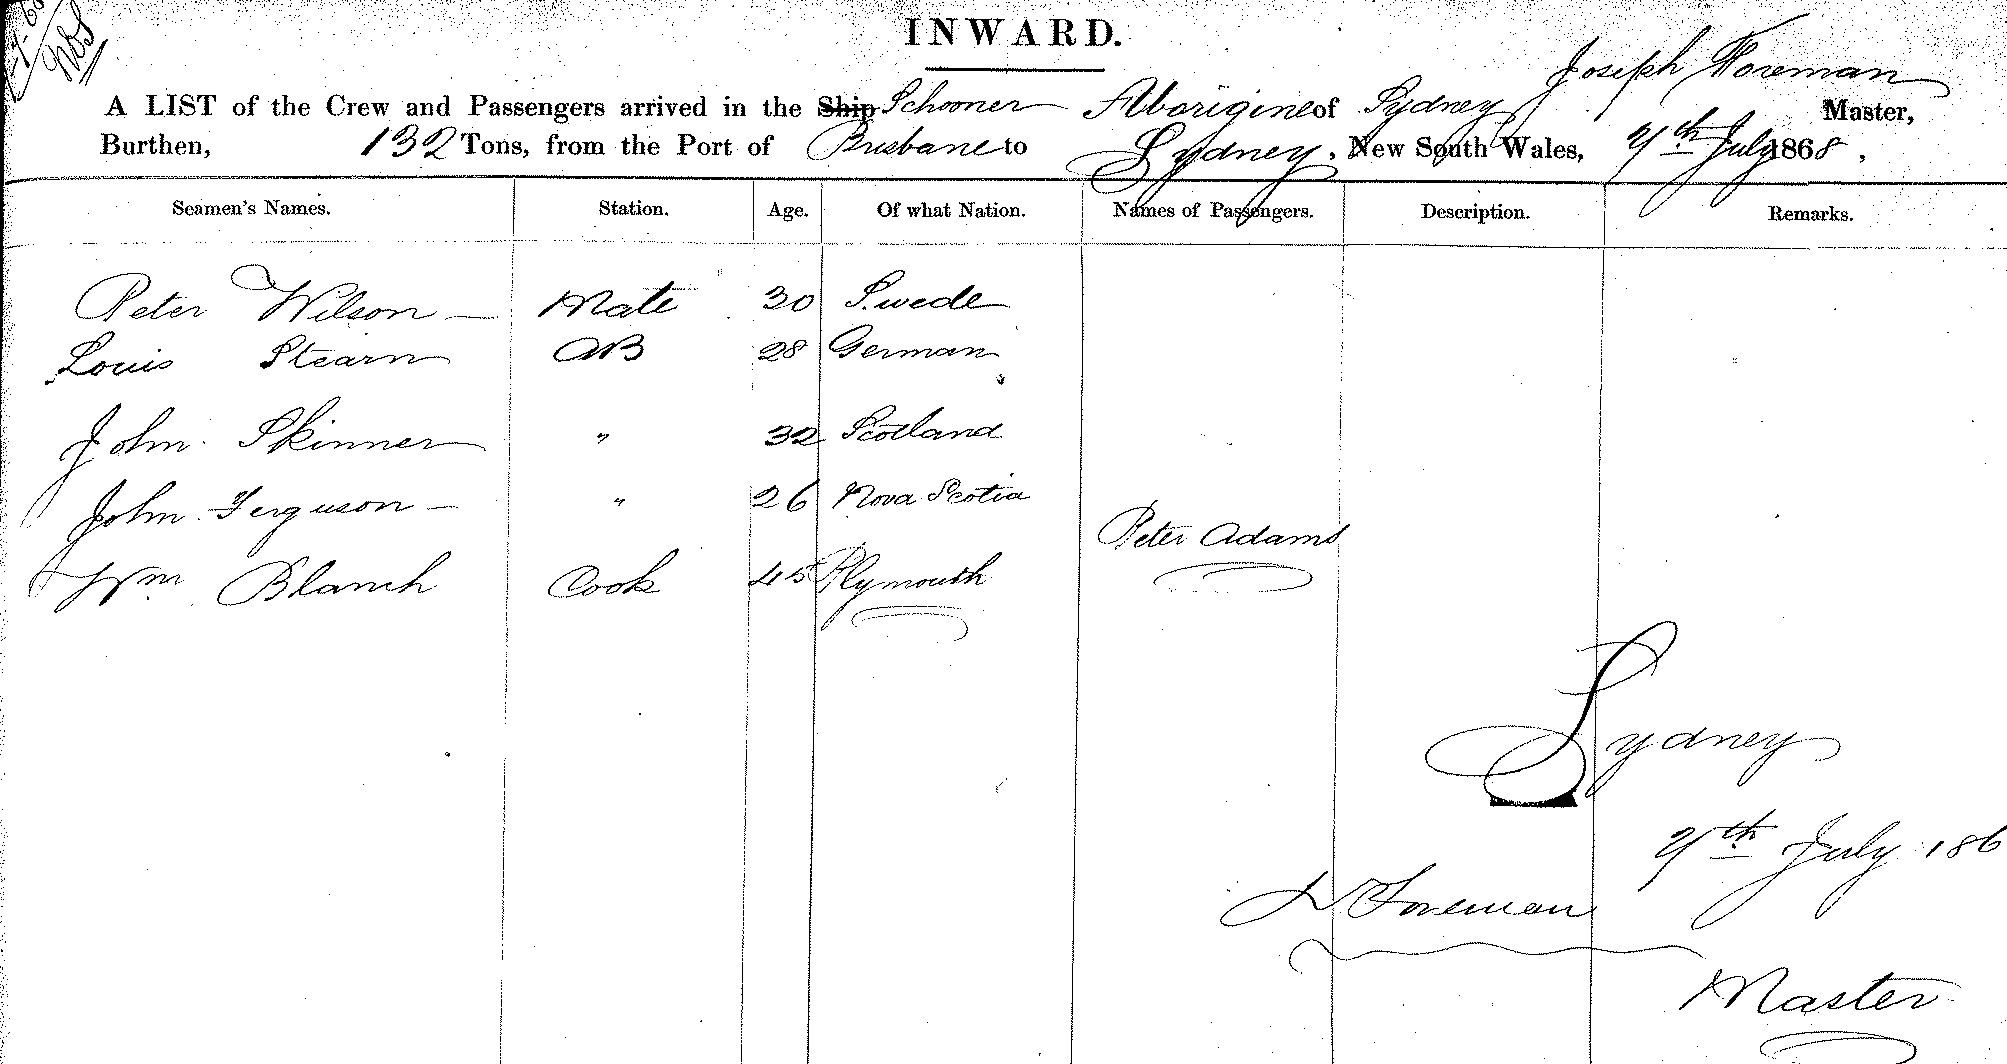 INWARD.
Joseph Foreman
A LIST of the Crew and Passengers arrived in the Ship Schooner Aborigine of Sydney Master,
Burthen, 132 Tons, from the Port of Brisbane to Sydney, New South Wales, 9th July 1868.
Seamen's Names. Station. Age. Of what Nation. Names of Passengers. Description. Remarks.
Peter Wilson — Mate 30 Swede
Louis Stearn AB 28 German
John Skinner " 32 Scotland
John Ferguson — " 26 Nova Scotia
Peter Adams
Wm Blanch Cook 45 Plymouth
Sydney
9th July 186
J Foreman
Master